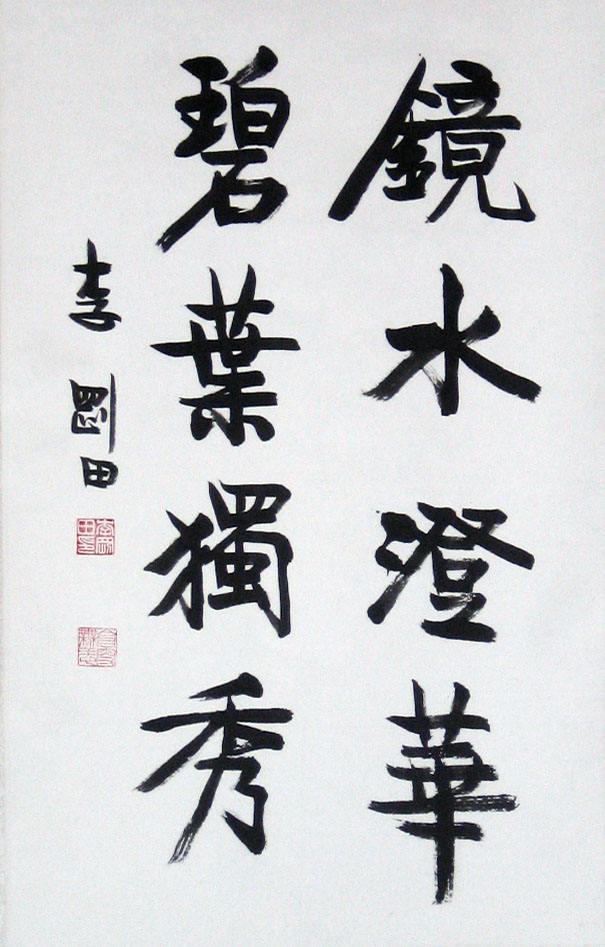 鏡水澄華
碧葉獨秀
李剛田